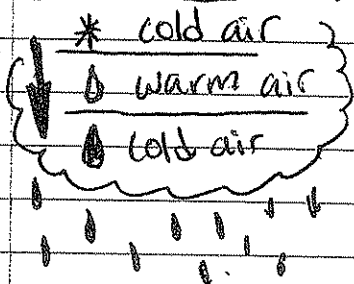 cold air
warm air
cold air